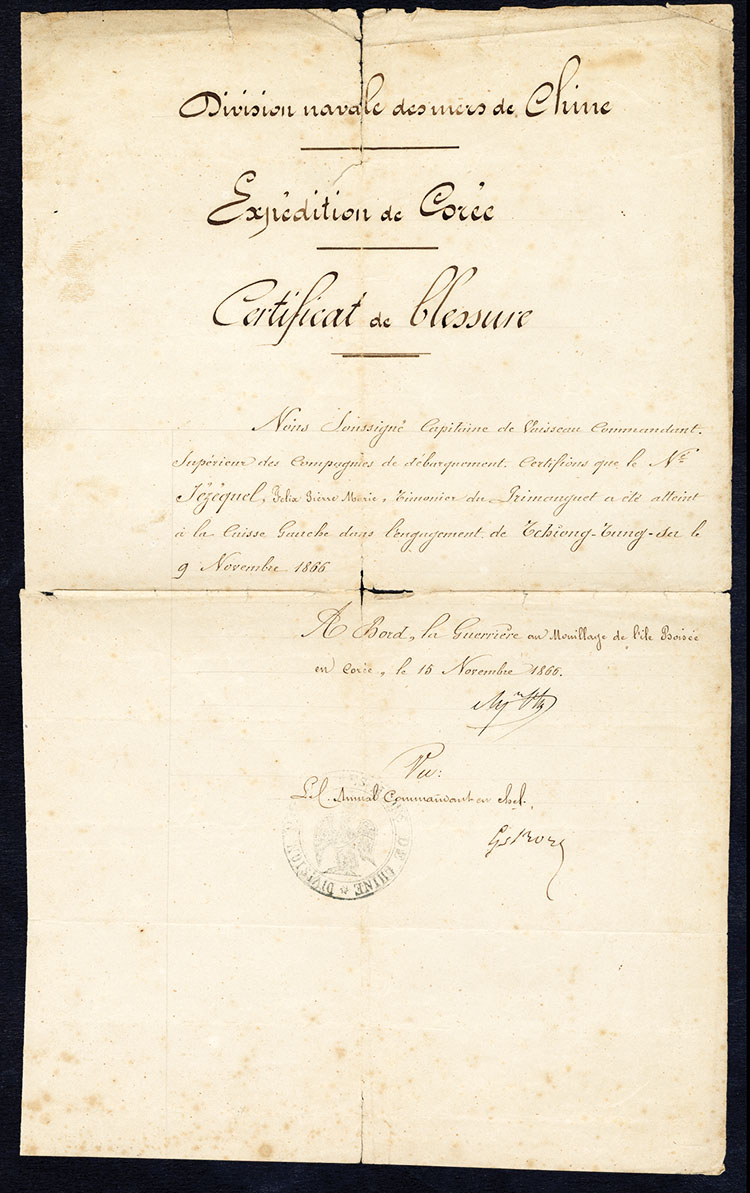 Division navale des mers de Chine
Expédition de Corée
Certificat de blessure
Nous Soussigné Capitaine de Vaisseau Commandant.
Supérieur des Compagnies de débarquement. Certifions que le Né
Jézéquel, Felix Pierre Marie, Timonier du Primauguet a été atteint
à la Cuisse Gauche dans l'engagement de Tchiong-Tung-Sa le
9 Novembre 1866
A Bord, la Guerrière au Mouillage de l'île Boisée
en Corée, le 15 Novembre 1866.
Vu:
Le C. Amiral Commandant en chef.
DIVISION DE CHINE